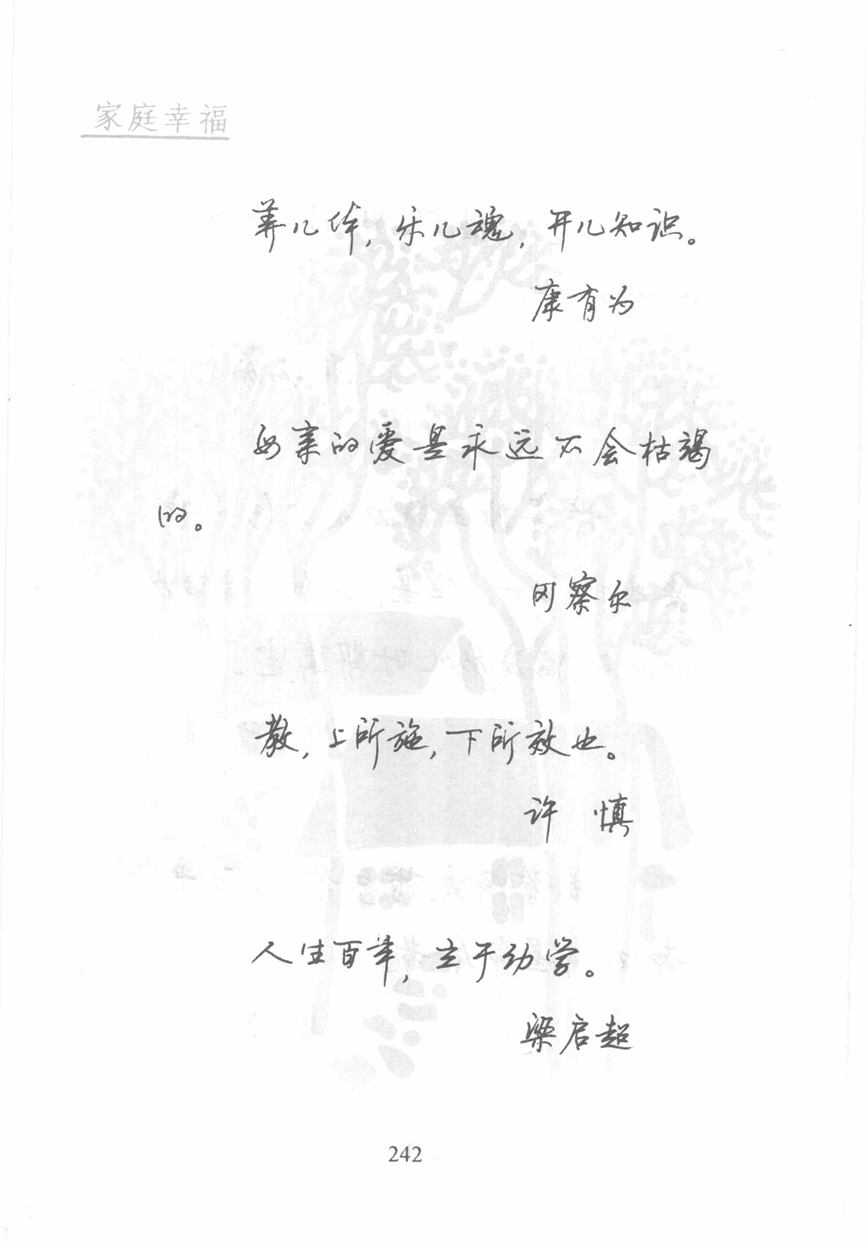 家庭幸福
养儿体，乐儿魂，开儿知识。
康有为
母亲的爱是永远不会枯竭
的。
冈察尔
教，上所施，下所效也。
许 慎
人生百年，立于幼学。
梁启超
242